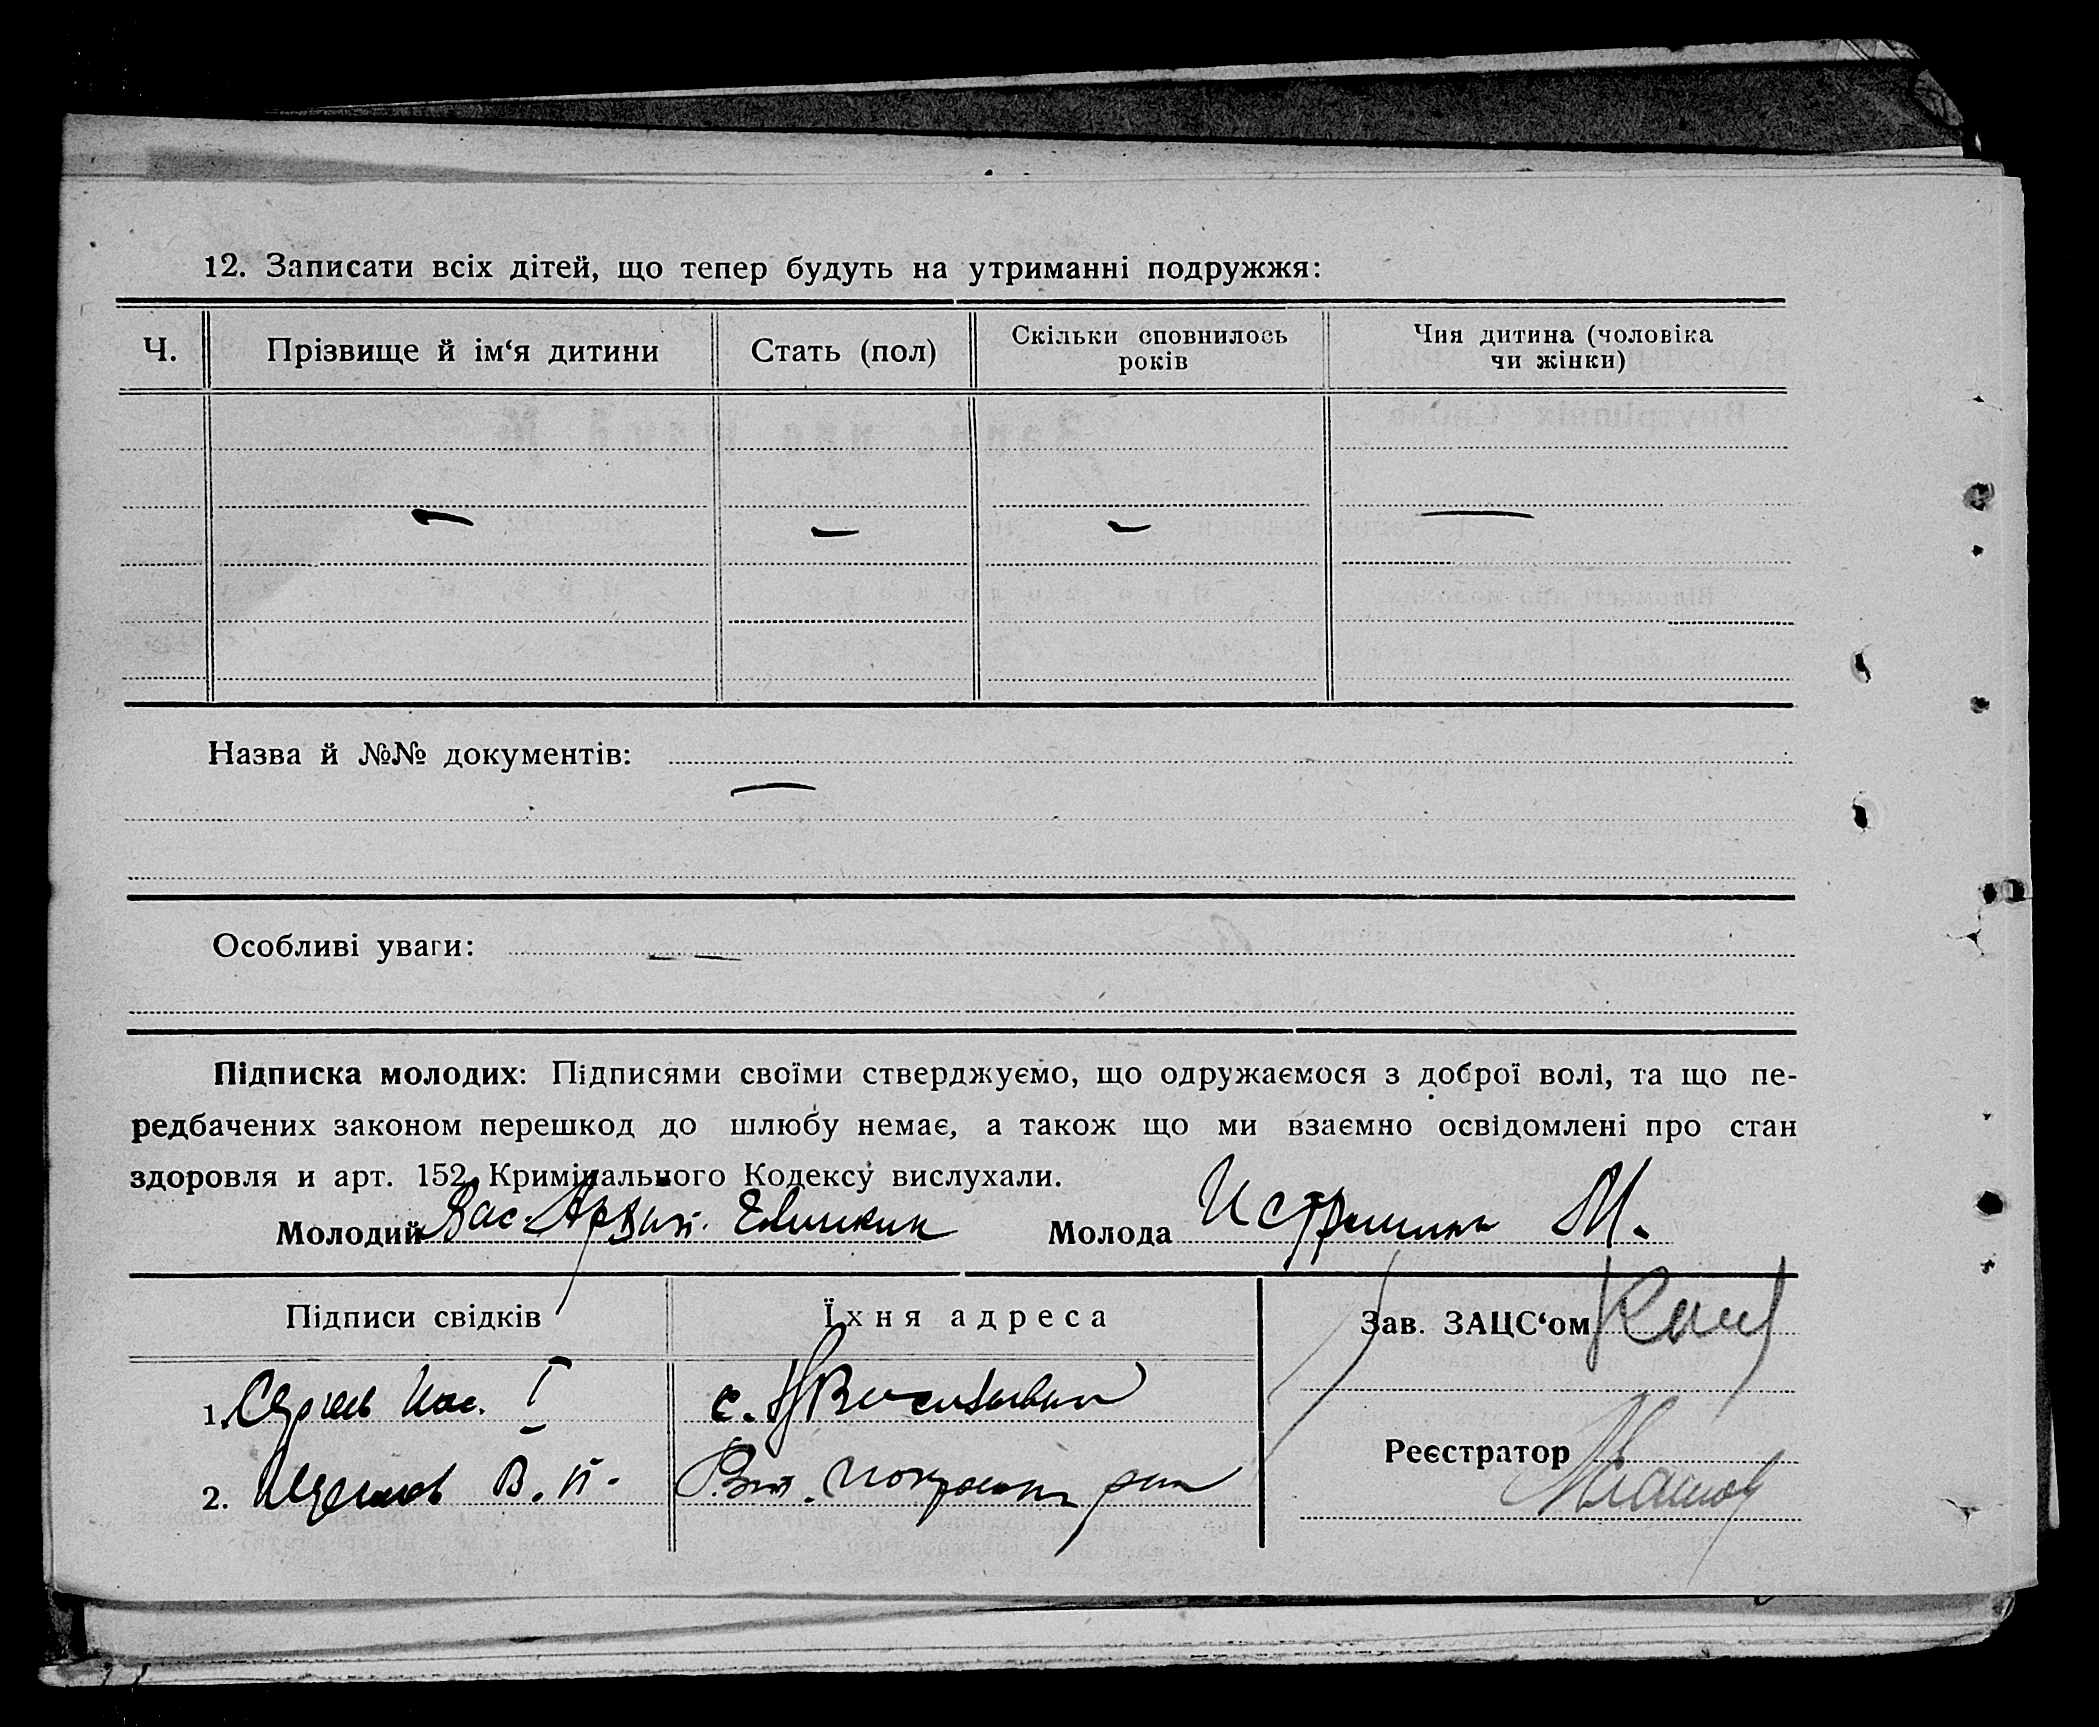 12. Записати всіх дітей, що тепер будуть на утриманні подружжя:
Ч. Прізвище й ім‘я дитини Стать (пол) Скільки сповнилось років Чия дитина (чоловіка чи жінки)
— — — —
Назва й №№ документів:
—
Особливі уваги: — —
Підписка молодих: Підписями своїми стверджуємо, що одружаємося з доброї волі, та що пе-
редбачених законом перешкод до шлюбу немає, а також що ми взаємно освідомлені про стан
здоровля и арт. 152 Кримінального Кодексу вислухали.
Молодий Вас. Молода М.
Підписи свідків Їхня адреса Зав. ЗАЦС‘ом
1. I с.
2. В. П.
Реєстратор